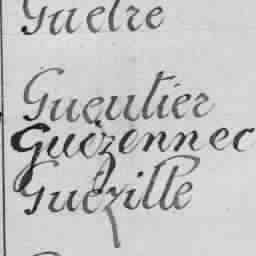 Guetre
Gueutier
Guézennec
Guézille